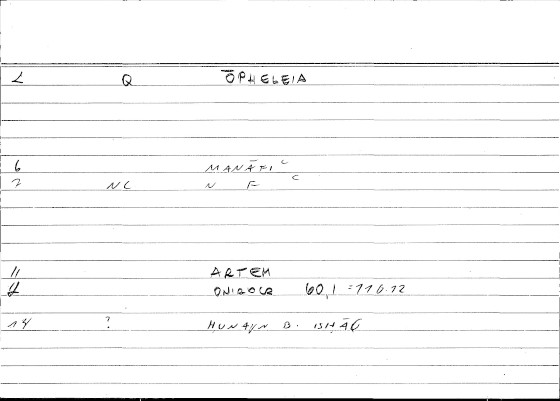 L Q ŌPHELEIA
6 MANĀFIʿ
2 NC N F ʿ
11 ARTEM
ONIROCR 60,1 = 116.12
14 ? HUNAYN B. ISHĀQ